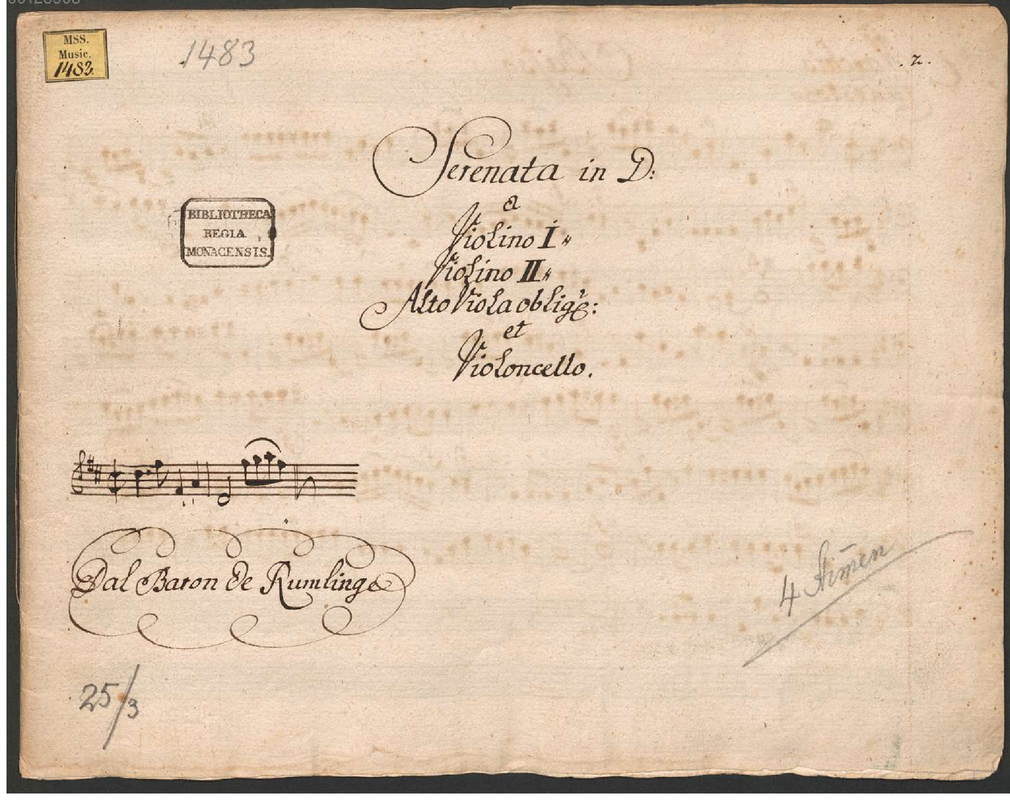 MSS.
Music.
1483.
1483
.2.
Serenata in D:
a
Violino I„
Violino II„
Alto Viola oblig:
et
Violoncello.
BIBLIOTHECA
REGIA
MONACENSIS.
Dal Baron de Rumling
4 Stim̄en
25/3